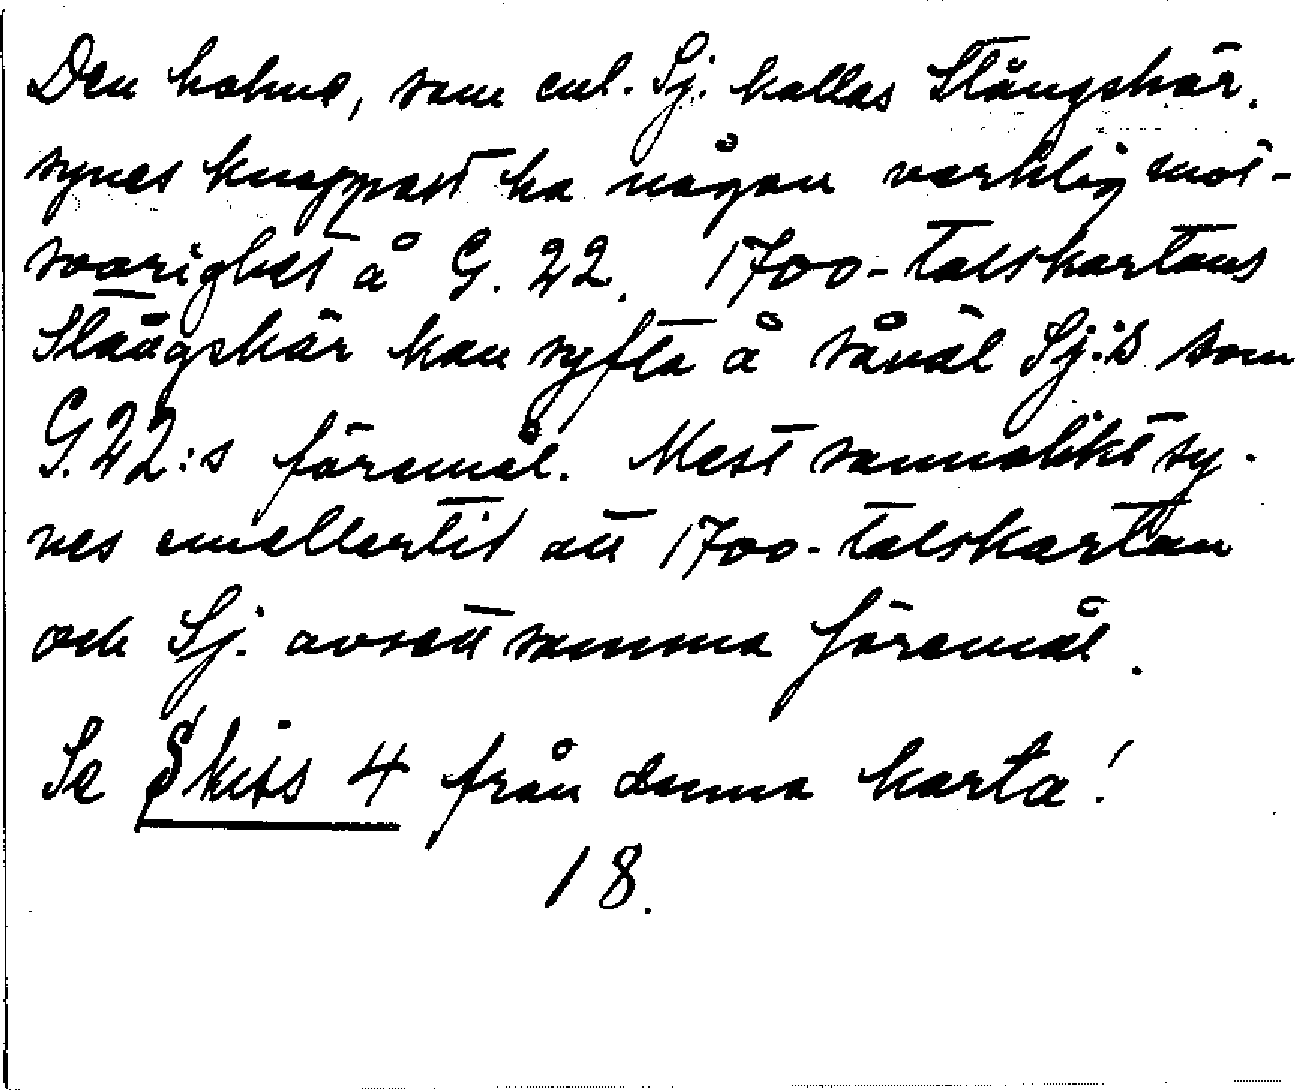 Den holme, som enl. Sj. kallas Stångskär,
synes knappast ha någon verklig mot-
svarighet å G. 22. 1700-talskartans
Stångskär kan syfta å såväl Sj:s som
G. 22:s föremål. Mest sannolikt sy-
nes emellertid att 1700-talskartan
och Sj. avsett samma föremål.
Se Skiss 4 från denna karta!
18.